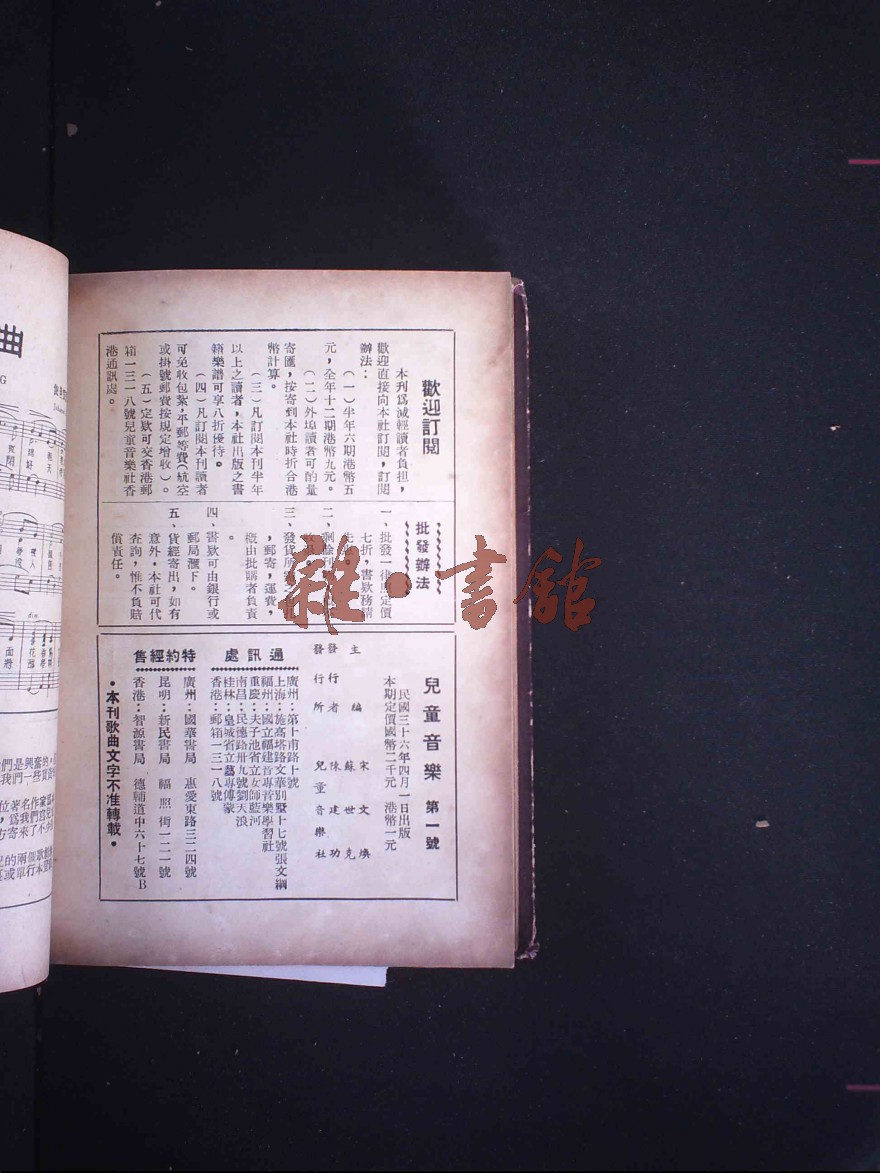 歡迎訂閱
本刊爲減輕讀者負担，
歡迎直接向本社訂閱，訂閱
辦法：
（一）半年六期港幣五
元，全年十二期港幣九元。
（二）外埠讀者可酌量
寄匯，按寄到本社時折合港
幣計算。
（三）凡訂閱本刊半年
以上之讀者，本社出版之書
籍樂譜可享八折優待。
（四）凡訂閱本刊讀者
可免收包紮，平郵等費（航空
或掛號郵費按規定增收）。
（五）定欵可交香港郵
箱一三一八號兒童音樂社香
港通訊處。
批發辦法
一、批發一律照定價
七折，書欵務請
二、剩餘刊
三、發貨所需
，郵寄，運費，
概由批購者負責
四、書欵可由銀行或
郵局滙下。
五、貨經寄出，如有
意外，本社可代
查詢，惟不負賠
償責任。
兒童音樂 第一號
民國三十六年四月一日出版
本期定價國幣二千元 港幣一元
主編 宋文煥
蘇世克
發行者 陳建功
發行所 兒童音樂社
通訊處
廣州：第十甫路十號
上海：施高塔路文華別墅十七號張文綱
福州：國立福建音專音樂學習社
重慶：夫子池省立女師藍河
南昌：民德路卅九號劉天浪
桂林：皇城省立藝專傅蒙
香港：郵箱一三一八號
特約經售
廣州：國華書局 惠愛東路三二四號
昆明：新民書局 福照街一二一號
香港：智源書局 德輔道中六十七號B
•本刊歌曲文字不准轉載•
曲
們是興奮的，
位著名作家
雜•書舘